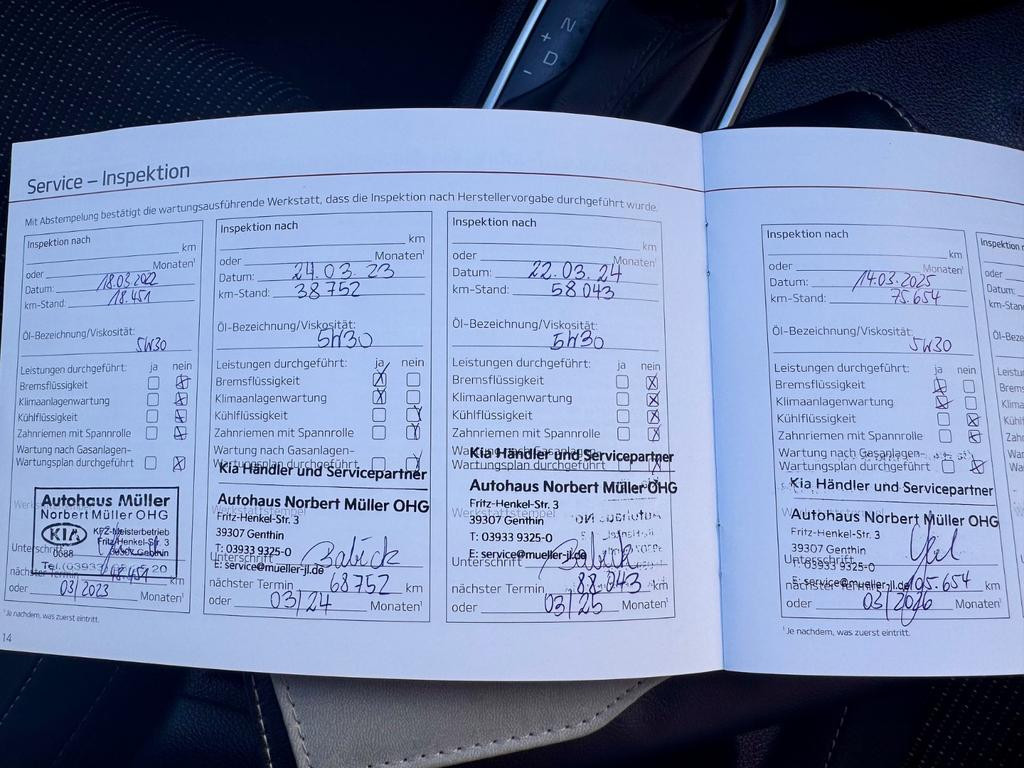 N
+
D
-
Service – Inspektion
Mit Abstempelung bestätigt die wartungsausführende Werkstatt, dass die Inspektion nach Herstellervorgabe durchgeführt wurde.
Inspektion nach
km
oder Monaten¹
Datum: 18.03.2022
km-Stand: 18.451
Öl-Bezeichnung/Viskosität:
5W30
Leistungen durchgeführt: ja nein
Bremsflüssigkeit
Klimaanlagenwartung
Kühlflüssigkeit
Zahnriemen mit Spannrolle
Wartung nach Gasanlagen-
Wartungsplan durchgeführt
Autohaus Müller
Norbert Müller OHG
KIA KFZ-Meisterbetrieb
Fritz-Henkel-Str. 3
0688 39307 Genthin
Unterschrift
nächster Termin km
oder 03/2023 Monaten¹
¹Je nachdem, was zuerst eintritt.
14
Inspektion nach
km
oder Monaten¹
Datum: 24.03.23
km-Stand: 38752
Öl-Bezeichnung/Viskosität:
5W30
Leistungen durchgeführt: ja nein
Bremsflüssigkeit
Klimaanlagenwartung
Kühlflüssigkeit
Zahnriemen mit Spannrolle
Wartung nach Gasanlagen-
Wartungsplan durchgeführt
Kia Händler und Servicepartner
Autohaus Norbert Müller OHG
Fritz-Henkel-Str. 3
39307 Genthin
T: 03933 9325-0
Unterschrift
E: service@mueller-jl.de
nächster Termin 68752 km
oder 03/24 Monaten¹
Inspektion nach
km
oder Monaten¹
Datum: 22.03.24
km-Stand: 58043
Öl-Bezeichnung/Viskosität:
5W30
Leistungen durchgeführt: ja nein
Bremsflüssigkeit
Klimaanlagenwartung
Kühlflüssigkeit
Zahnriemen mit Spannrolle
Wartung nach Gasanlagen-
Kia Händler und Servicepartner
Wartungsplan durchgeführt
Autohaus Norbert Müller OHG
Werkstattstempel
Fritz-Henkel-Str. 3
39307 Genthin
T: 03933 9325-0
E: service@mueller-jl.de
Unterschrift
nächster Termin 88.043 km
oder 03/25 Monaten¹
Inspektion nach
km
oder Monaten¹
Datum: 14.03.2025
km-Stand: 75.654
Öl-Bezeichnung/Viskosität:
5W30
Leistungen durchgeführt: ja nein
Bremsflüssigkeit
Klimaanlagenwartung
Kühlflüssigkeit
Zahnriemen mit Spannrolle
Wartung nach Gasanlagen-
Wartungsplan durchgeführt
Kia Händler und Servicepartner
Autohaus Norbert Müller OHG
Fritz-Henkel-Str. 3
39307 Genthin
Unterschrift
T: 03933 9325-0
E: service@mueller-jl.de
nächster Termin 105.654 km
oder 03/2026 Monaten¹
¹Je nachdem, was zuerst eintritt.